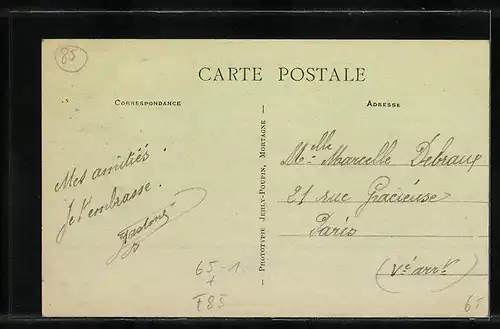 85
CARTE POSTALE
CORRESPONDANCE
ADRESSE
Mes amitiés.
Je t'embrasse.
— PHOTOTYPE JEHLY-POUPIN, MORTAGNE —
Melle Marcelle Debraux
21 rue Gracieuse
Paris
(Ve arrt)
65-1
F85
65